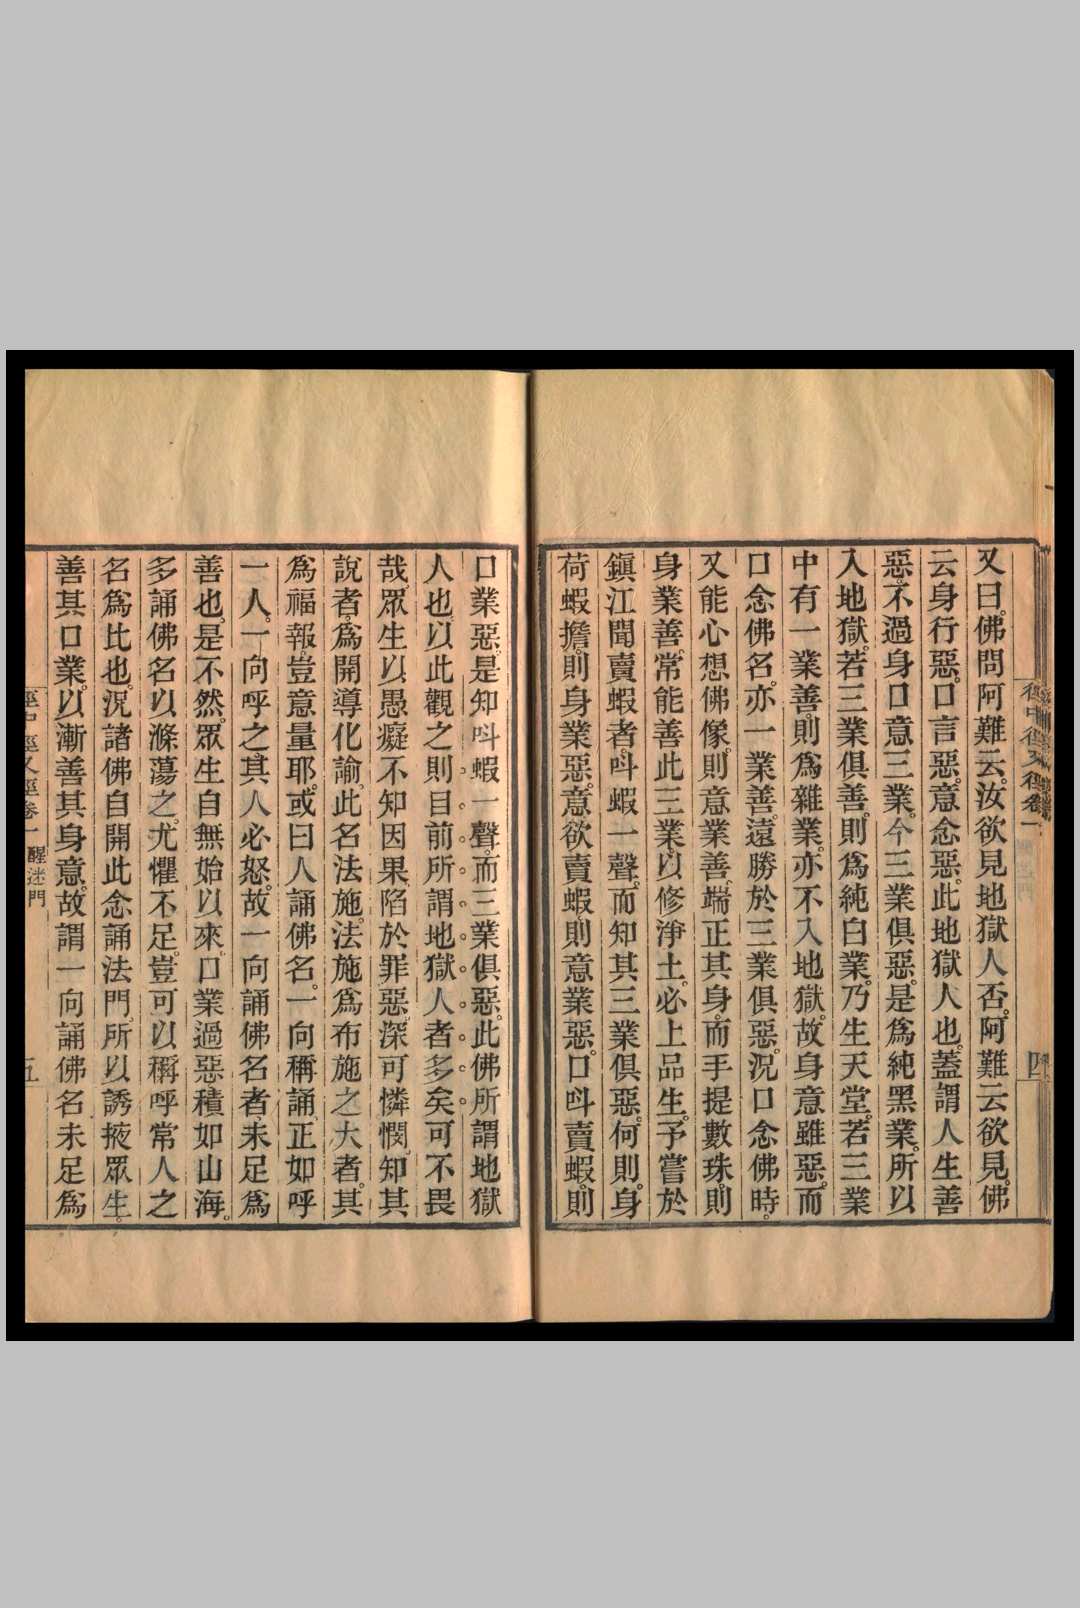 又曰。佛問阿難云。汝欲見地獄人否。阿難云欲見。佛
云身行惡。口言惡。意念惡。此地獄人也。蓋謂人生善
惡。不過身口意三業。今三業俱惡。是爲純黑業。所以
入地獄。若三業俱善。則爲純白業。乃生天堂。若三業
中有一業善。則爲雜業。亦不入地獄。故身意雖惡。而
口念佛名。亦一業善。遠勝於三業俱惡。況口念佛時。
又能心想佛像。則意業善。端正其身。而手提數珠。則
身業善。常能善此三業。以修淨土。必上品生。予嘗於
鎭江聞賣蝦者。呌蝦一聲。而知其三業俱惡。何則。身
荷蝦擔。則身業惡。意欲賣蝦。則意業惡。口呌賣蝦。則
口業惡。是知呌蝦一聲。而三業俱惡。此佛所謂地獄
人也。以此觀之。則目前所謂地獄人者多矣。可不畏
哉。眾生以愚癡不知因果。陷於罪惡。深可憐憫。知其
說者。爲開導化諭。此名法施。法施爲布施之大者。其
爲福報。豈意量耶。或曰人誦佛名。一向稱誦。正如呼
一人。一向呼之。其人必怒。故一向誦佛名者。未足爲
善也。是不然。眾生自無始以來。口業過惡。積如山海。
多誦佛名以滌蕩之。尤懼不足。豈可以稱呼常人之
名爲比也。況諸佛自開此念誦法門。所以誘掖眾生。
善其口業。以漸善其身意。故謂一向誦佛名未足爲
徑中徑又徑卷一 醒迷門 五
徑中徑又徑卷一 四